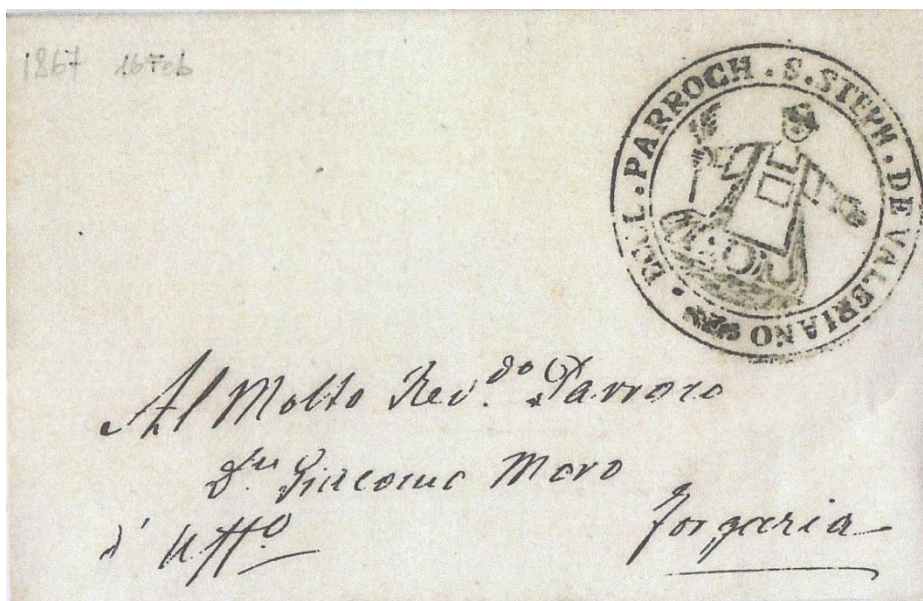 1867 16 Feb
PARROCH . S. STEPH . DE VALERIANO
Al Molto Rev.do Parroco
Dn Giacomo Moro
d' Uffo
Forgaria